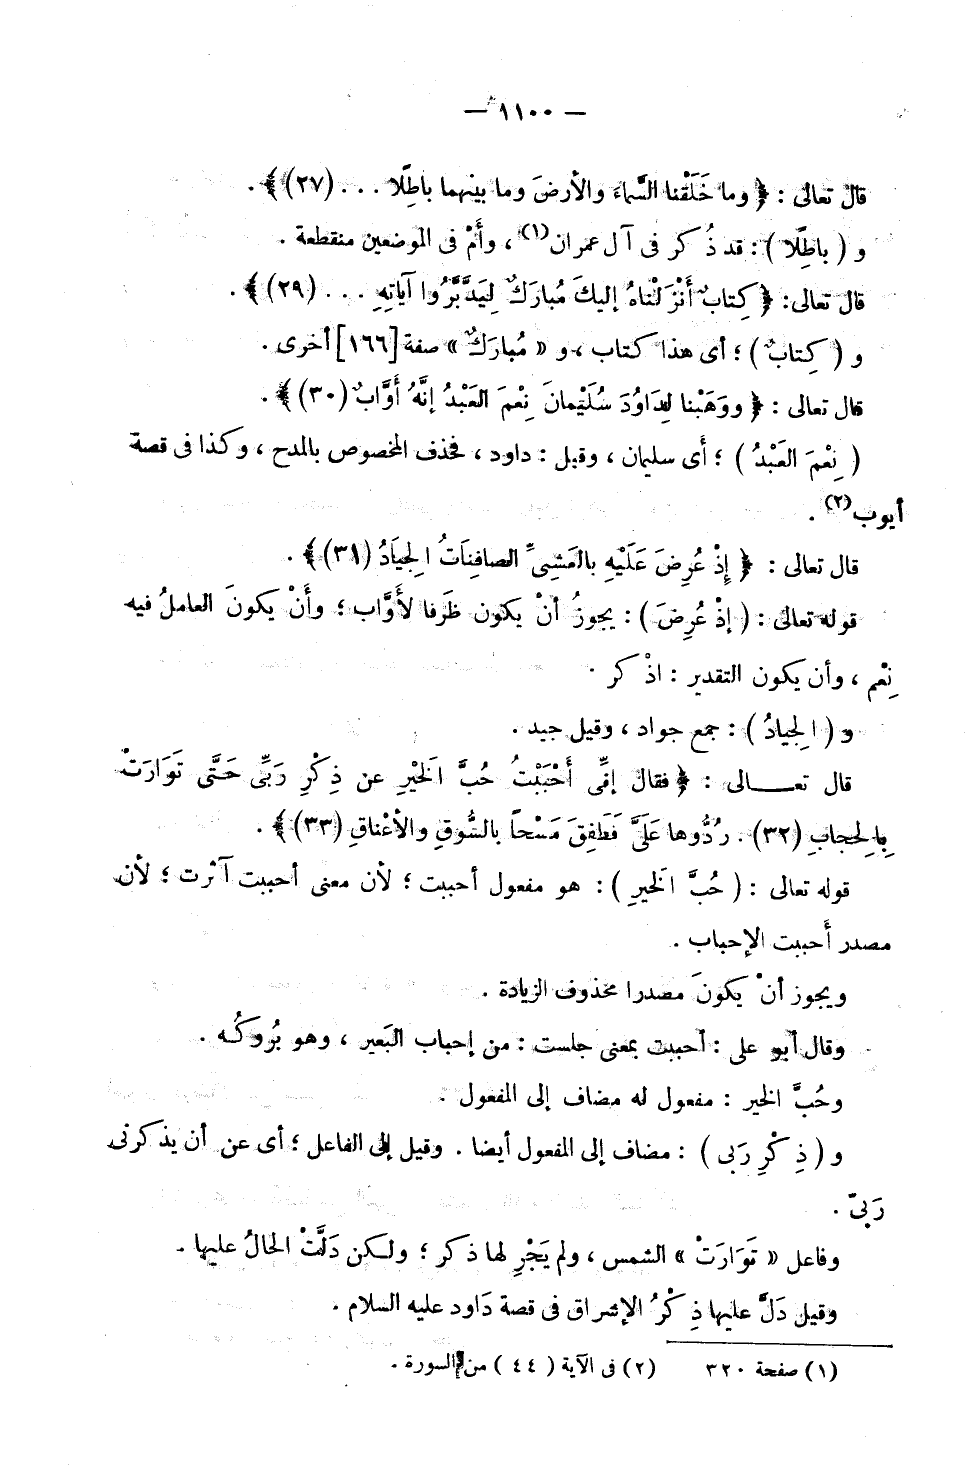 — ١١٠٠ —
قال تعالى : ﴿ وما خَلَقْنا السَّماءَ والأرضَ وما بينهما باطِلًا . . . (٢٧) ﴾ .
و ( باطِلًا ) : قد ذُكر فى آل عمران(١) ، وأَمْ فى الموضعين منقطعة .
قال تعالى : ﴿ كِتابٌ أَنْزَلْناهُ إليكَ مُبارَكٌ لِيَدَّبَّرُوا آياتِهِ . . . (٢٩) ﴾ .
و ( كِتابٌ ) ؛ أى هذا كتاب ، و « مُبارَكٌ » صفة [١٦٦] أخرى .
قال تعالى : ﴿ ووَهَبْنا لِدَاوُدَ سُلَيْمانَ نِعْمَ العَبْدُ إنَّهُ أَوَّابٌ (٣٠) ﴾ .
( نِعْمَ العَبْدُ ) ؛ أى سليمان ، وقيل : داود ، فحذف المخصوص بالمدح ، وكذا فى قصة
أيوب(٢) .
قال تعالى : ﴿ إِذْ عُرِضَ عَلَيْهِ بالعَشِىِّ الصافِنَاتُ الجِيَادُ (٣١) ﴾ .
قوله تعالى : ( إذْ عُرِضَ ) : يجوزُ أنْ يكون ظَرفا لأَوَّاب ؛ وأَنْ يكونَ العاملُ فيه
نِعْم ، وأن يكون التقدير : اذْكر .
و ( الجِيادُ ) : جمع جواد ، وقيل جيد .
قال تعـــالى : ﴿ فقال إنِّى أَحْبَبْتُ حُبَّ الخَيْرِ عن ذِكْرِ رَبِّى حَتَّى تَوَارَتْ
بالحِجابِ (٣٢) . رُدُّوها عَلَىَّ فَطَفِقَ مَسْحاً بالسُّوقِ والأعْناقِ (٣٣) ﴾ .
قوله تعالى : ( حُبَّ الخيرِ ) : هو مفعول أحببت ؛ لأن معنى أحببت آثرت ؛ لأن
مصدر أَحببت الإحباب .
ويجوز أنْ يكونَ مصدرا محذوف الزيادة .
وقال أبو على : أحببت بمعنى جلست : من إحباب البَعير ، وهو بُروكُه .
وحُبَّ الخير : مفعول له مضاف إلى المفعول .
و ( ذِكْرِ رَبى ) : مضاف إلى المفعول أيضا . وقيل إلى الفاعل ؛ أى عن أن يذكرنى
رَبىّ .
وفاعل « تَوَارَتْ » الشمس ، ولم يَجْرِ لها ذكر ؛ ولكن دَلَّتْ الحالُ عليها .
وقيل دَلَّ عليها ذِكْرُ الإشراق فى قصة دَاود عليه السلام .
(١) صفحة ٣٢٠ (٢) فى الآية ( ٤٤ ) من السورة .